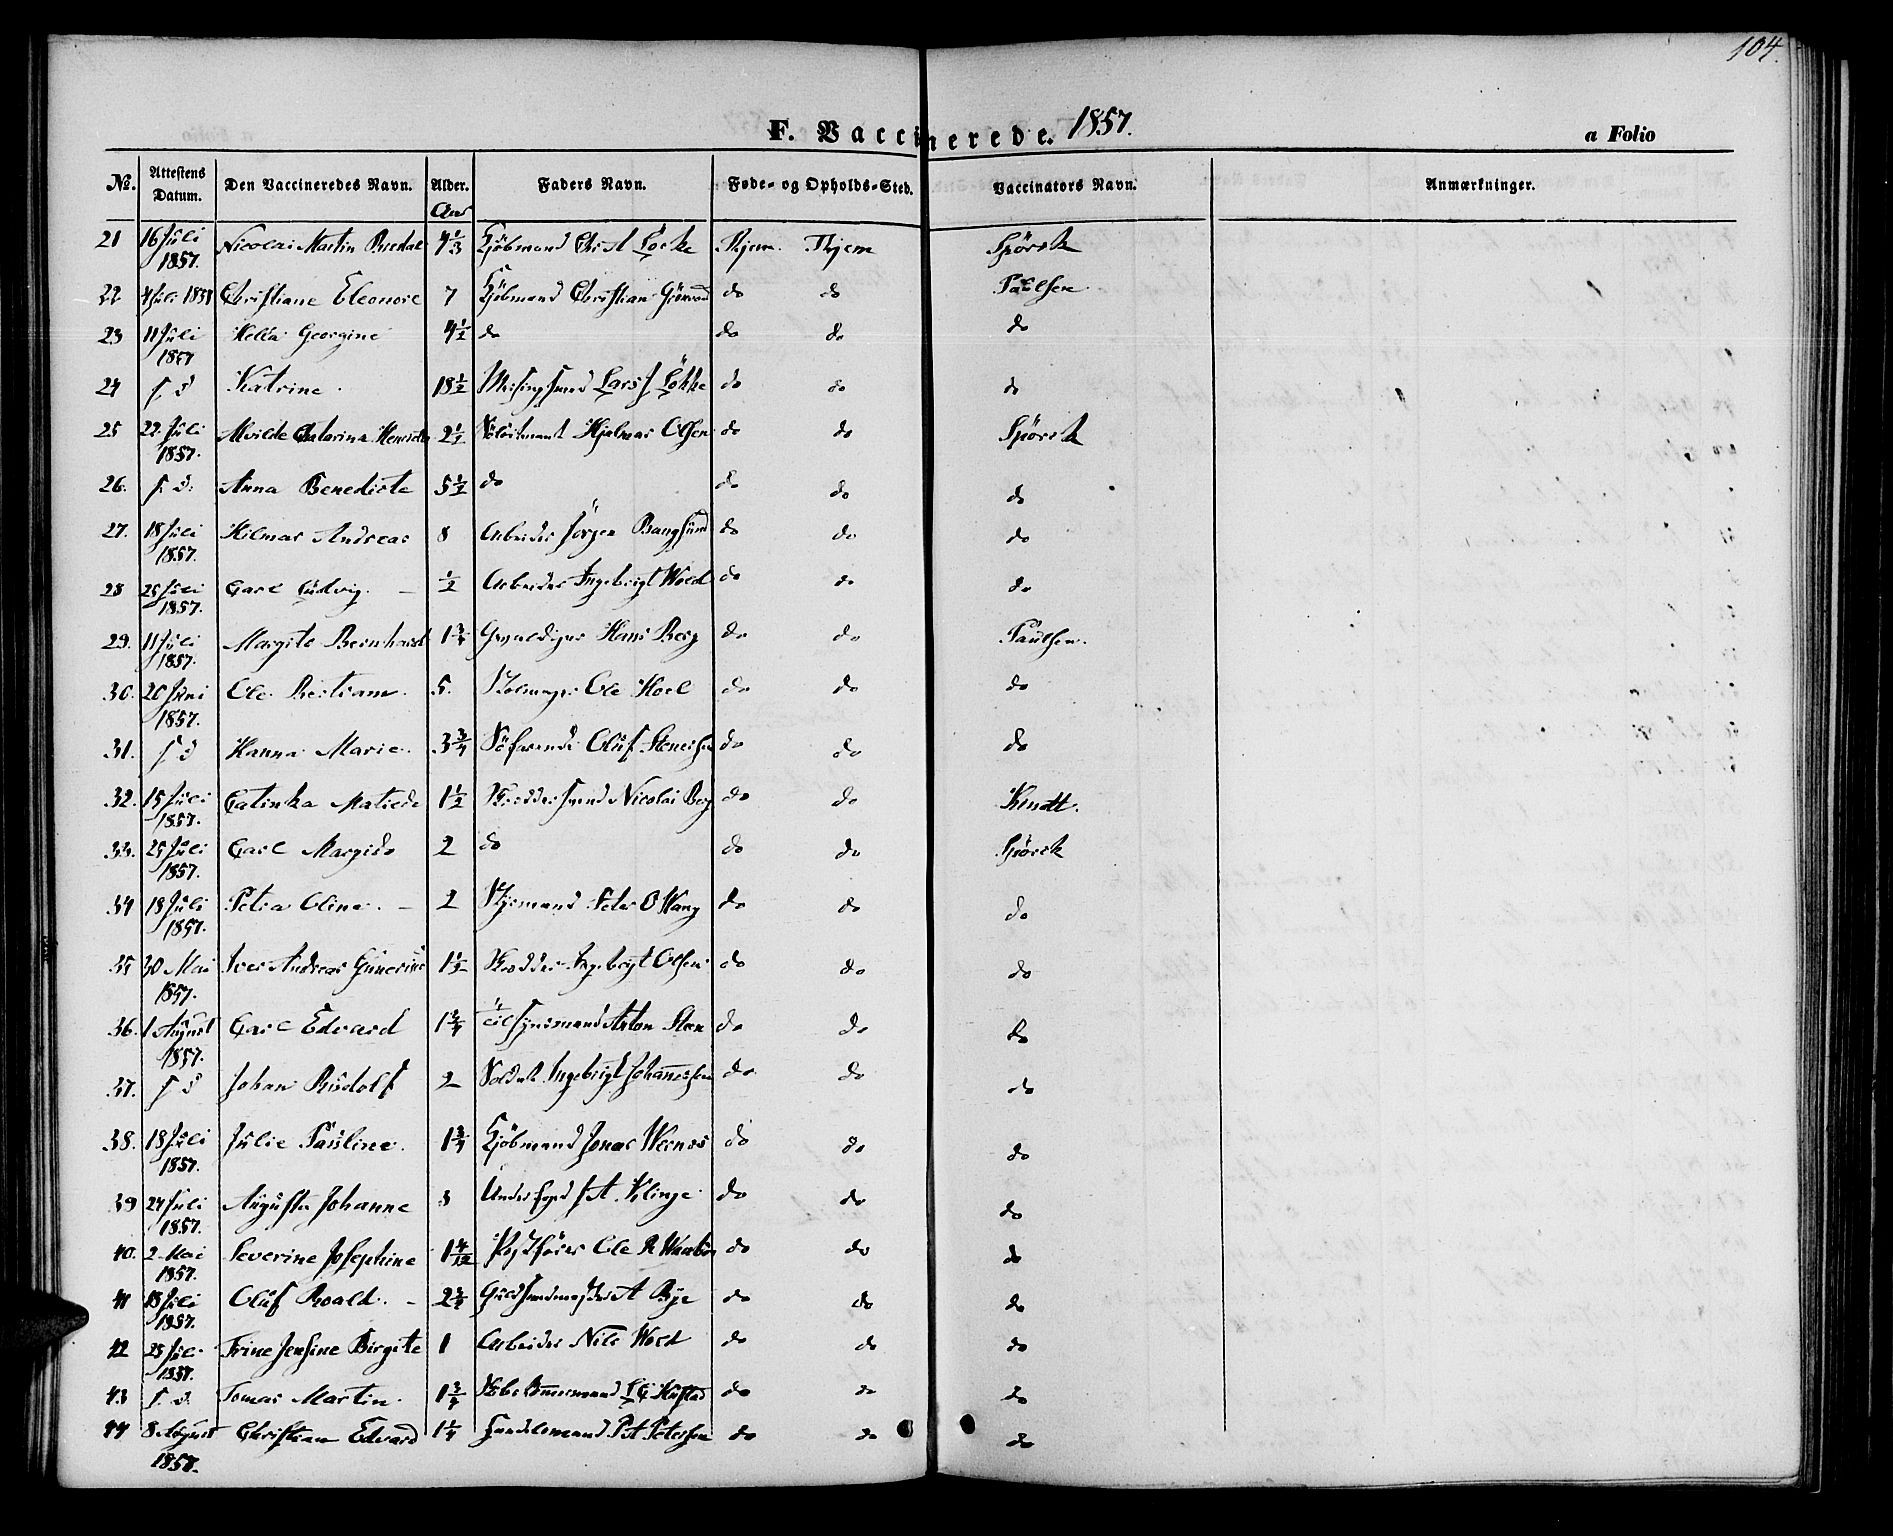 104.
F. Vaccinerede. 1857. a Folio
No. Attestens Datum. Den Vaccineredes Navn. Alder. Faders Navn. Føde- og Opholds-Sted. Vaccinators Navn. Anmærkninger.
Aar
21 16 Juli 1857. Nicolai Martin Bredal 4 1/3 Kjöbmand Chr. A Löcke Thjem Thjem Spörck
22 4 Juli 1857 Christiane Eleonore 7 Kjöbmand Christian do do Paulsen
23 11 Juli 1857 Hella Georgine 4 1/2 do do do do
24 s d Katrine 18 1/2 Lars Lökke do do do
25 22 Juli 1857. Alvilde Catarina 2 1/2 Hjalmar Olsen do do Spörck
26. s. d. Anna Benedicte 5 1/2 do do do do
27. 18 Juli 1857. Hilmar Andreas 8 Arbeider Jörgen Bangsund do do do
28 25 Juli 1857. Carl Ludvig. 1/2 Arbeider Ingebrigt Wold do do do
29. 11 Juli 1857. Margite Bernhard 1 3/4 Hans Berg do do Paulsen.
30. 20 Juni 1857. Ole Bertram 5. Ole Hoel do do do
31. s d Hanna Marie. 3 3/4 Söfarende Oluf Stenersen do do do
32. 15 Juli 1857. Catinka Matilde 1 1/2 Skreddersvend Nicolai Berg do do Kindt.
33. 25 Juli 1857. Carl Margido 2 do do do Spörck
34 18 Juli 1857. Petra Oline. 2 Styrmand Peter O Wang do do do
35 30 Mai 1857. Iver Andreas 1 1/2 Skredder Ingebrigt Olsen do do do
36. 1 August 1857. Carl Edvard 1 3/4 Anton Steen do do do
37. s d Johan Rudolf 2 Soldat Ingebrigt Johannessen do do do
38. 18 Juli 1857. Julie Pauline. 1 3/4 Kjöbmand Jonas Wernes do do do
39 24 Juli 1857. Augusta Johanne 3 Underfoged A. Klinge do do do
40. 2 Mai 1857. Severine Josephine 1 4/12 Postförer Ole R do do do
41 18 Juli 1857. Oluf Roald. 2 3/4 Guldsmedmester A Bye do do do
42 25 Juli 1857. Trine Jensine Birgite 1 Arbeider Nils Wold do do do
43 s. d. Tomas Martin. 1 3/4 do do do
44 8 August 1857. Christian Edvard 1 1/4 Handelsmand Pet Petersen do do do